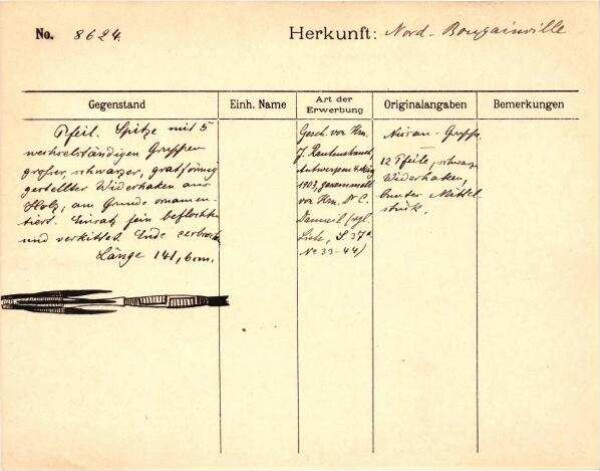 No. 8624.
Herkunft: Nord-Bougainville
Gegenstand
Einh. Name
Art der Erwerbung
Originalangaben
Bemerkungen
Pfeil. Spitze mit 5
wechselständigen Gruppen
großer, schwarzer, gratförmig
gestellter Widerhaken aus
Holz, am Grunde ornamen-
tiert. Einsatz fein beflochten
und verkittet. Ende zerbrochen.
Länge 141,6cm.
Gesch. von Hrn.
J. Rautenstrauch,
Antwerpen
1903, gesammelt
von Hrn. Dr C.
Danneil (vgl.
Liste, S. 37a
No 33-44)
12 Pfeile, schwarze
Widerhaken,
bunter Mittel
stück.